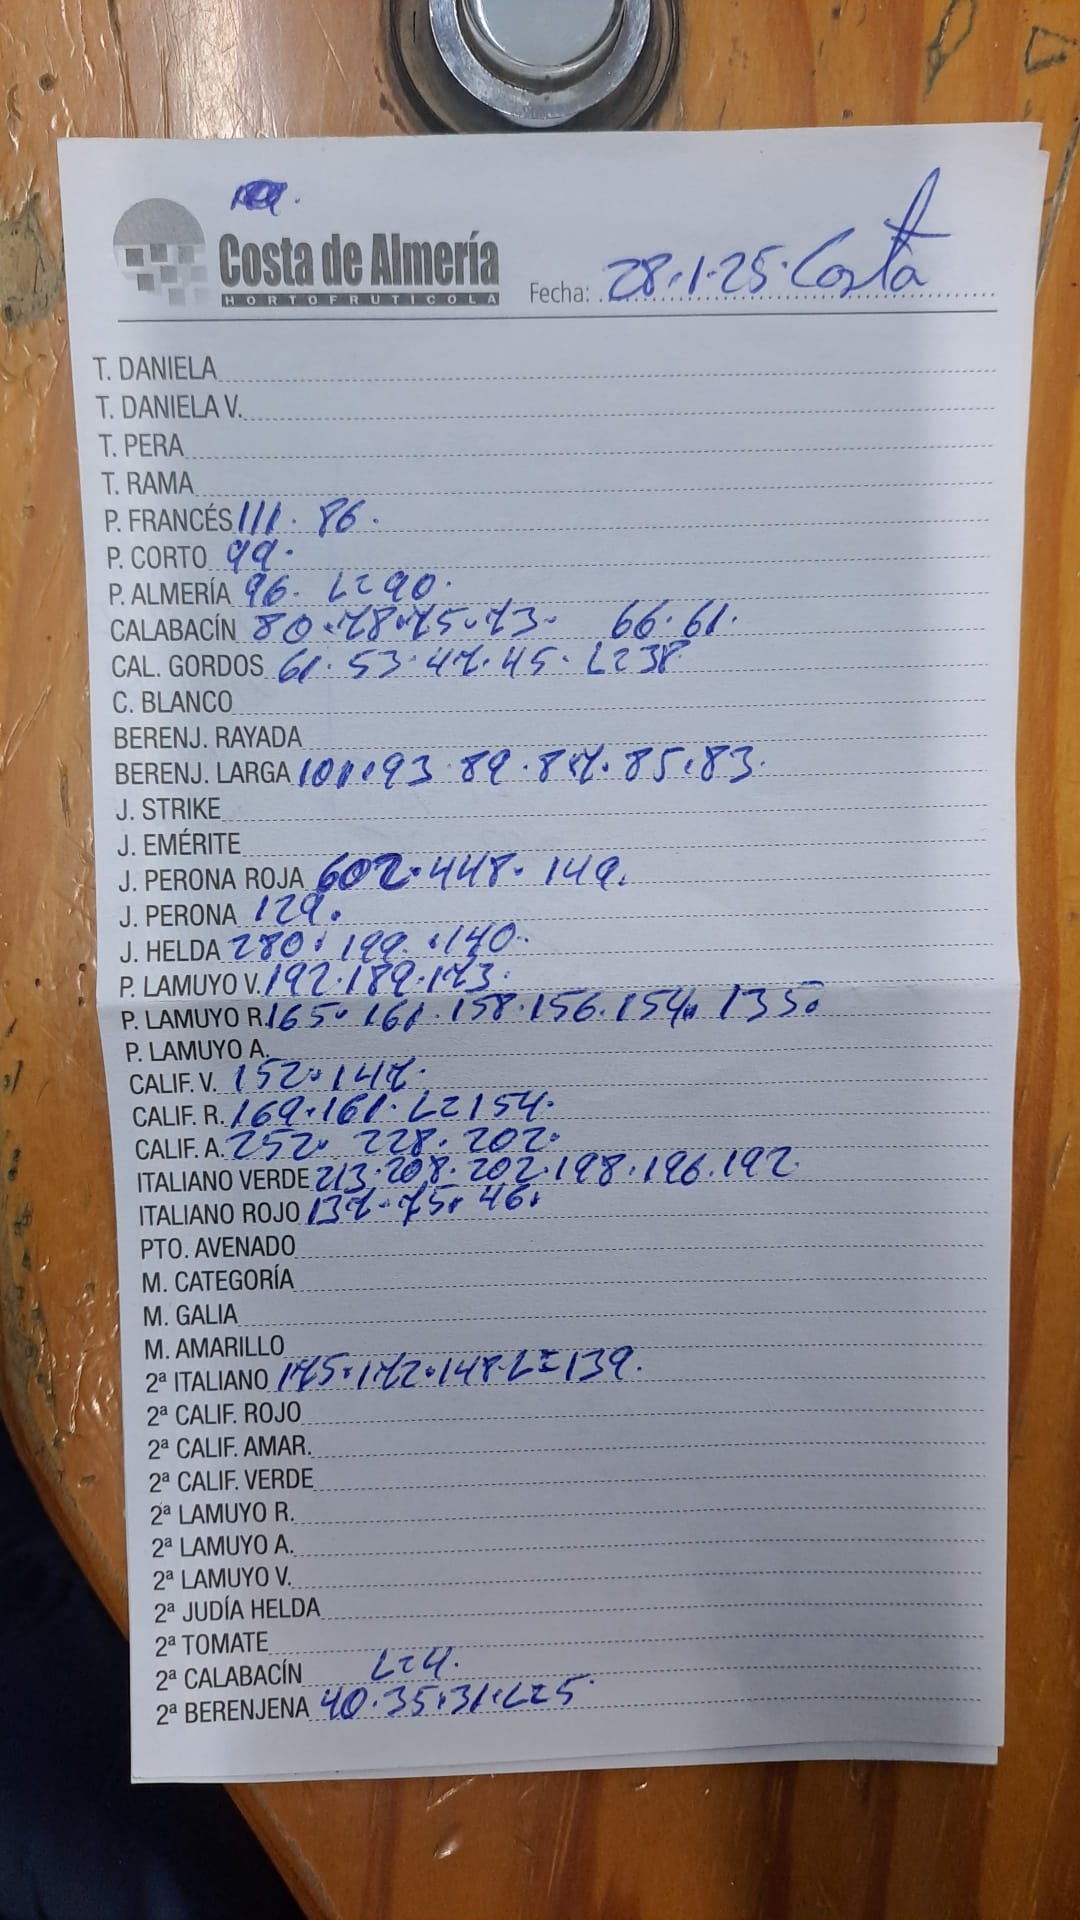 Costa de Almería
HORTOFRUTÍCOLA
Fecha: 28.1.25. Costa
T. DANIELA
T. DANIELA V.
T. PERA
T. RAMA
P. FRANCÉS 111. 86.
P. CORTO 99.
P. ALMERÍA 96. L=90.
CALABACÍN 80.78.75.73. 66.61.
CAL. GORDOS 61.53.47.45. L=38
C. BLANCO
BERENJ. RAYADA
BERENJ. LARGA 101.93.89.87.85.83.
J. STRIKE
J. EMÉRITE
J. PERONA ROJA 602.448.149.
J. PERONA 129.
J. HELDA 280.199.140.
P. LAMUYO V. 192.189.173.
P. LAMUYO R. 165.161.158.156.154. 135.
P. LAMUYO A.
CALIF. V. 152.147.
CALIF. R. 169.161. L=154.
CALIF. A. 252. 228. 202.
ITALIANO VERDE 213.208.202.198.196.192.
ITALIANO ROJO 137.75. 46.
PTO. AVENADO
M. CATEGORÍA
M. GALIA
M. AMARILLO
2ª ITALIANO 175.172.148.L=139.
2ª CALIF. ROJO
2ª CALIF. AMAR.
2ª CALIF. VERDE
2ª LAMUYO R.
2ª LAMUYO A.
2ª LAMUYO V.
2ª JUDÍA HELDA
2ª TOMATE
2ª CALABACÍN L=4.
2ª BERENJENA 40.35.31.L=5.